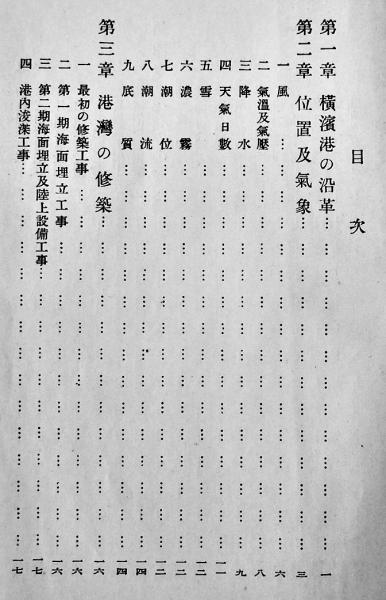 目次
第一章 橫濱港の沿革………………………………………一
第二章 位置及氣象………………………………………三
一 風………………………………………六
二 氣溫及氣壓………………………………………八
三 降水………………………………………九
四 天氣日數………………………………………一一
五 雪………………………………………一二
六 濃霧………………………………………一二
七 潮位………………………………………一二
八 潮流………………………………………一四
九 底質………………………………………一四
第三章 港灣の修築………………………………………一六
一 最初の修築工事………………………………………一六
二 第一期海面埋立工事………………………………………一六
三 第二期海面埋立及陸上設備工事………………………………………一七
四 港内浚渫工事………………………………………一七